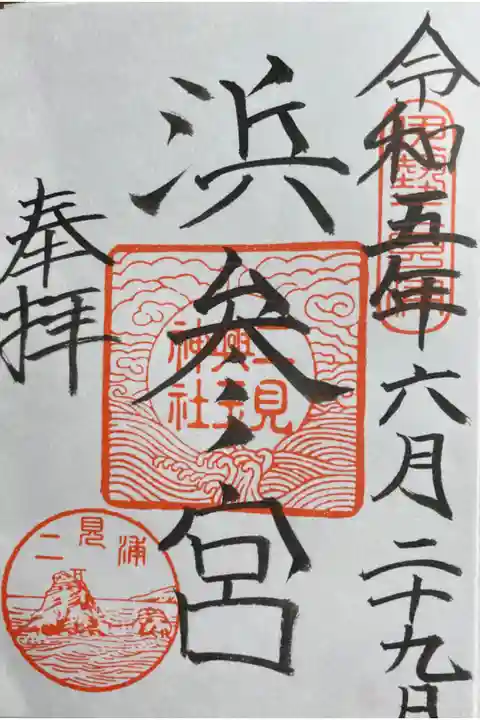 令和五年六月二十九日
伊勢
浜参宮
二見
興玉
神社
奉拝
二見浦